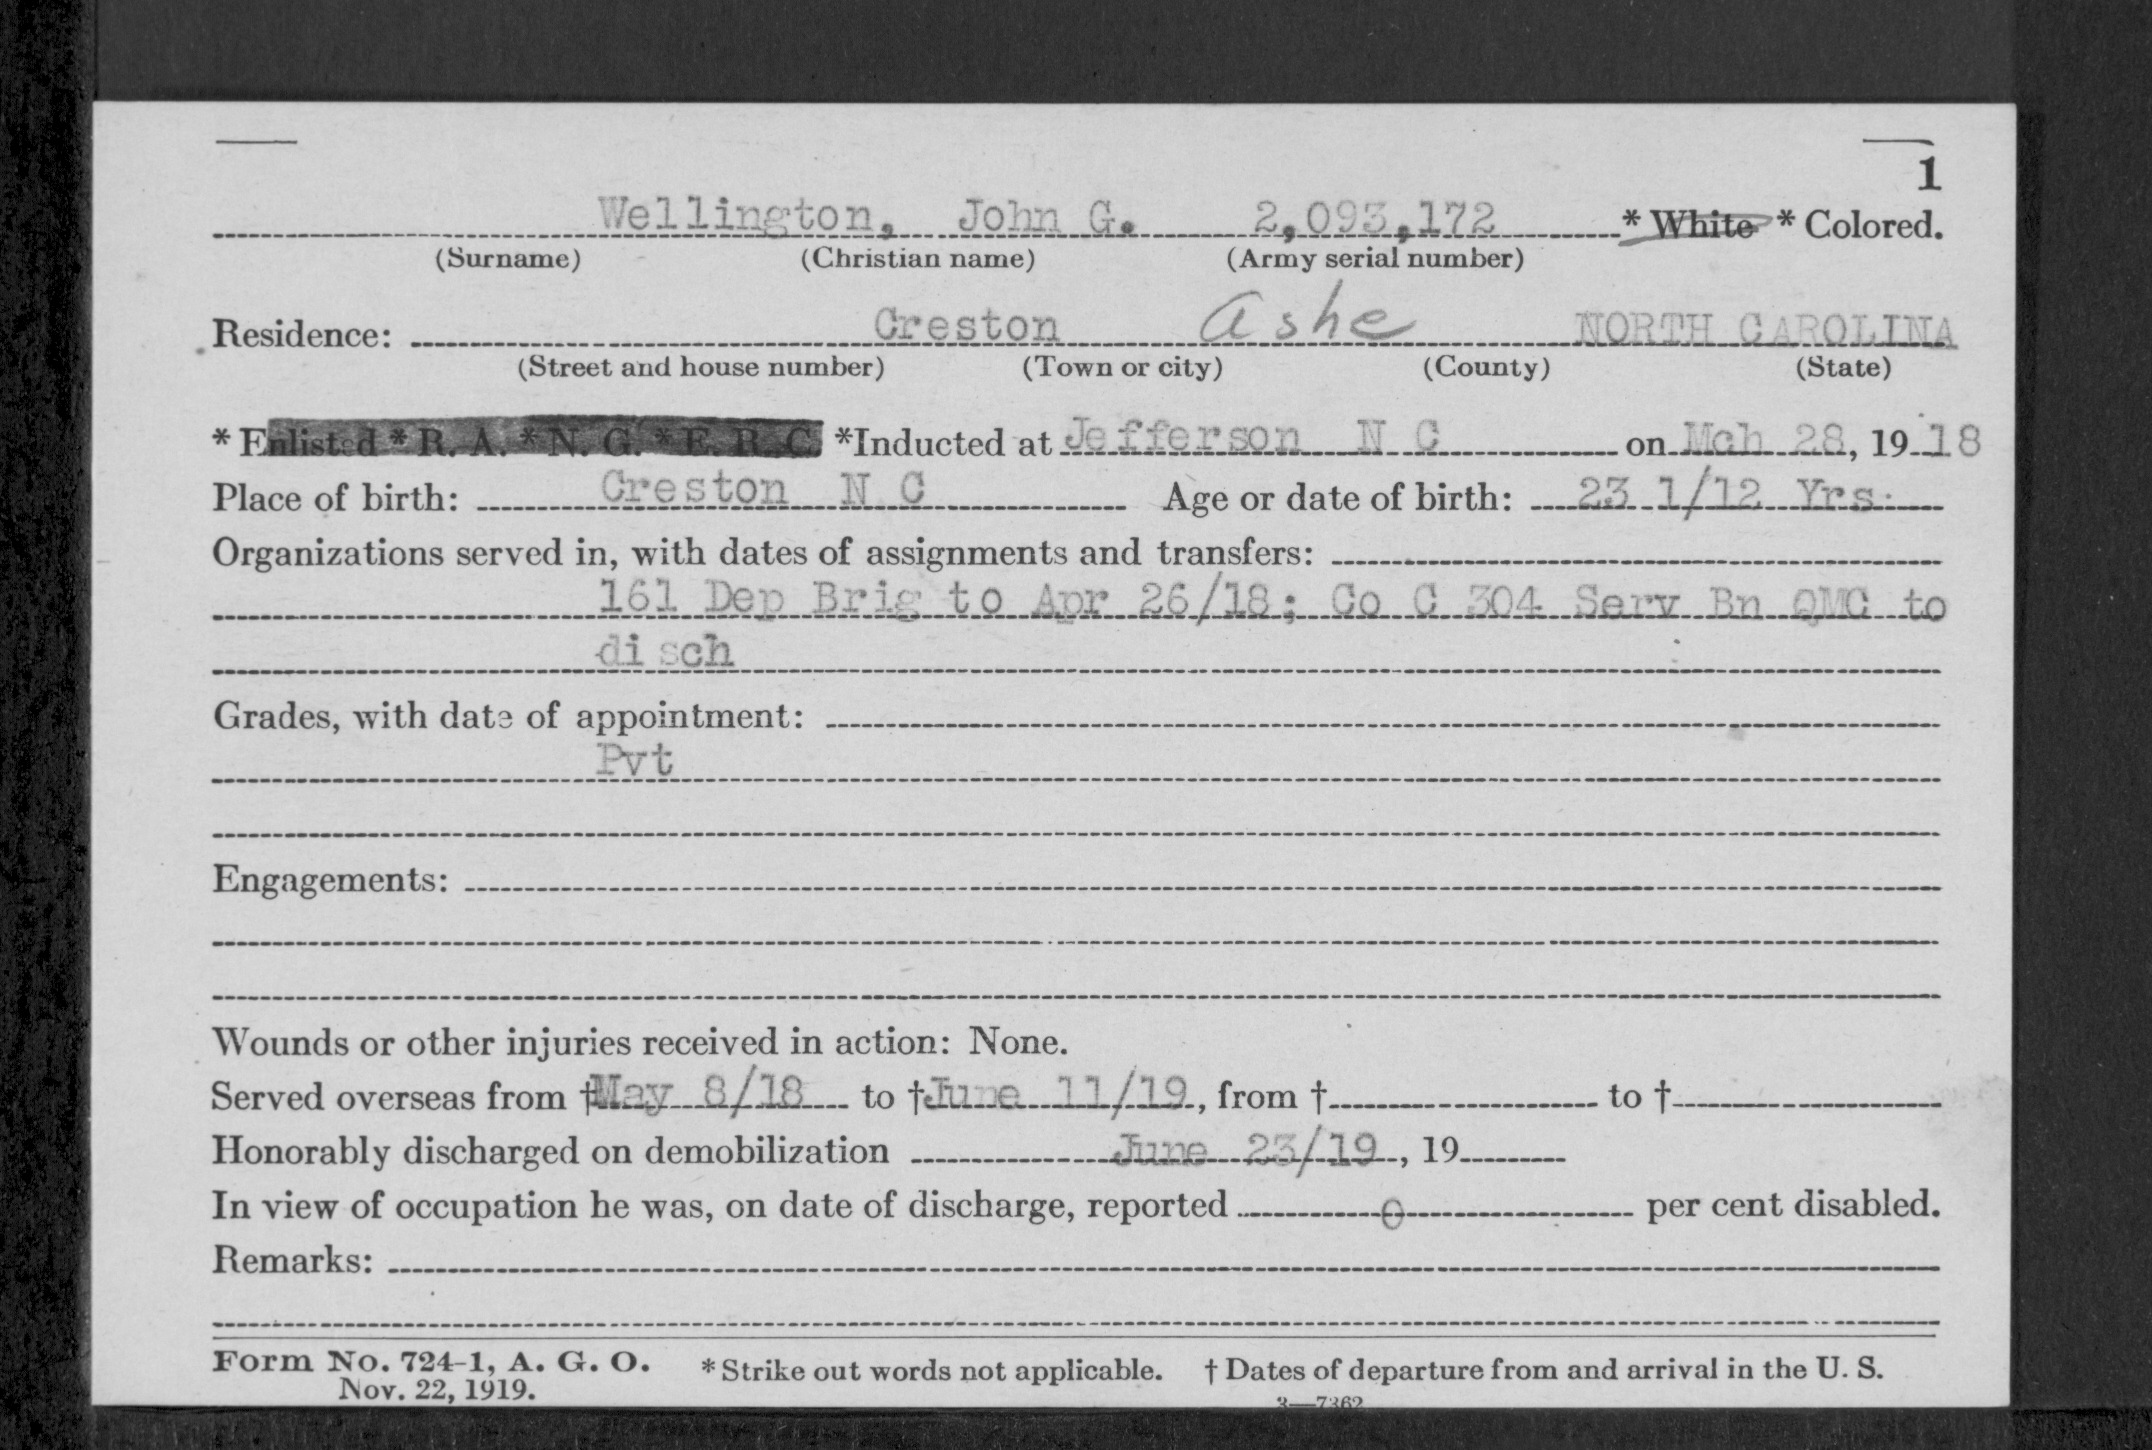 1
Wellington, John G. 2,093,172 * White * Colored.
(Surname) (Christian name) (Army serial number)
Residence: Creston Ashe NORTH CAROLINA
(Street and house number) (Town or city) (County) (State)
* Enlisted * R. A. * N. G. * E. R. C. *Inducted at Jefferson N C on Mch 28, 19 18
Place of birth: Creston N C Age or date of birth: 23 1/12 Yrs.
Organizations served in, with dates of assignments and transfers:
161 Dep Brig to Apr 26/18; Co C 304 Serv Bn QMC to
disch
Grades, with date of appointment:
Pvt
Engagements:
Wounds or other injuries received in action: None.
Served overseas from † May 8/18 to † June 11/19, from † to †
Honorably discharged on demobilization June 23/19, 19
In view of occupation he was, on date of discharge, reported 0 per cent disabled.
Remarks:
Form No. 724-1, A. G. O. * Strike out words not applicable. † Dates of departure from and arrival in the U. S.
Nov. 22, 1919. 3—7362